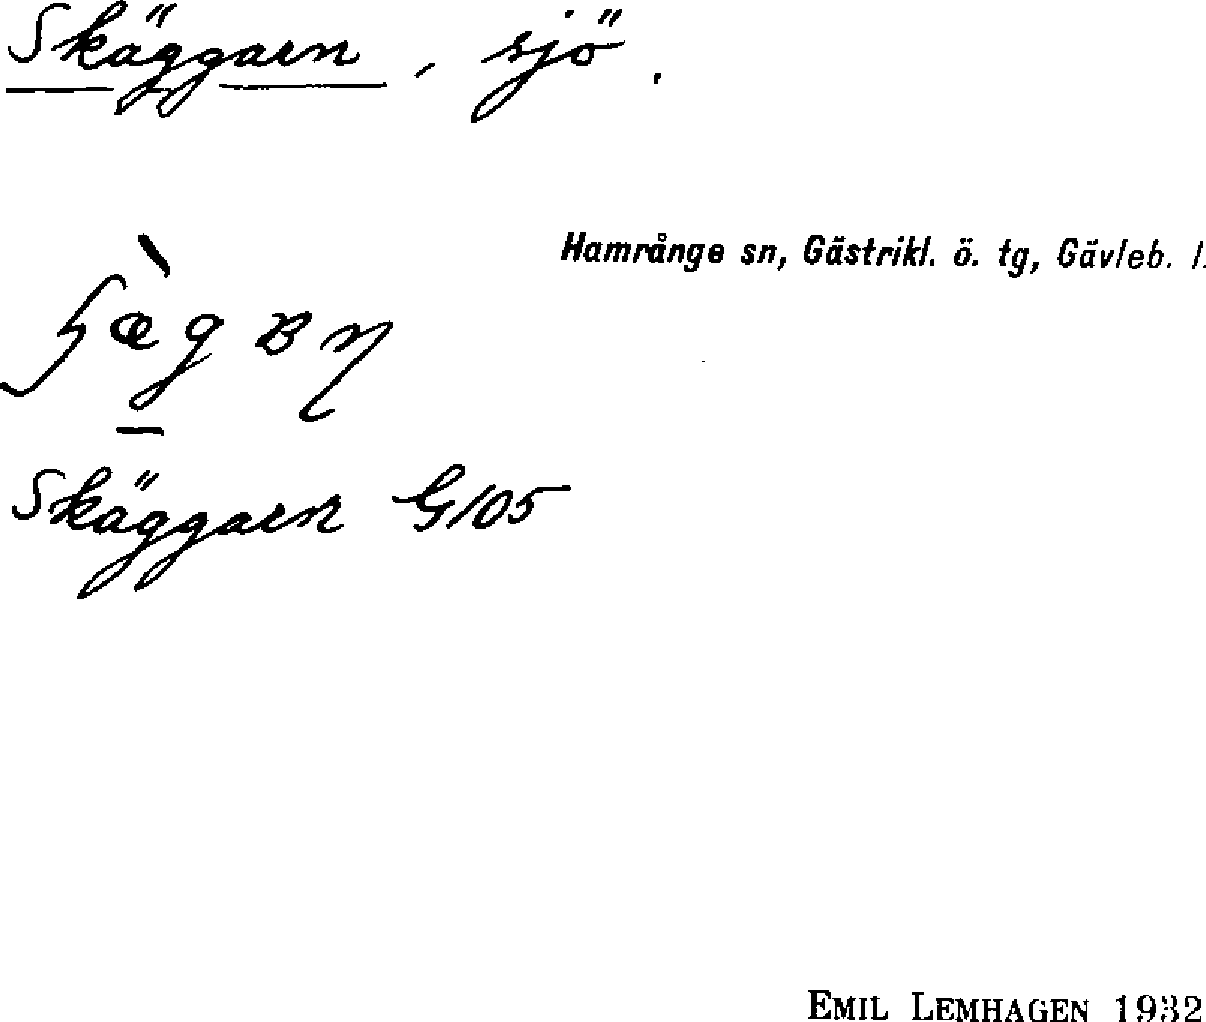 Skäggarn, sjö.
Hamrånge sn, Gästrikl. ö. tg, Gävleb. l.
Skäggarn G105
EMIL LEMHAGEN 1932